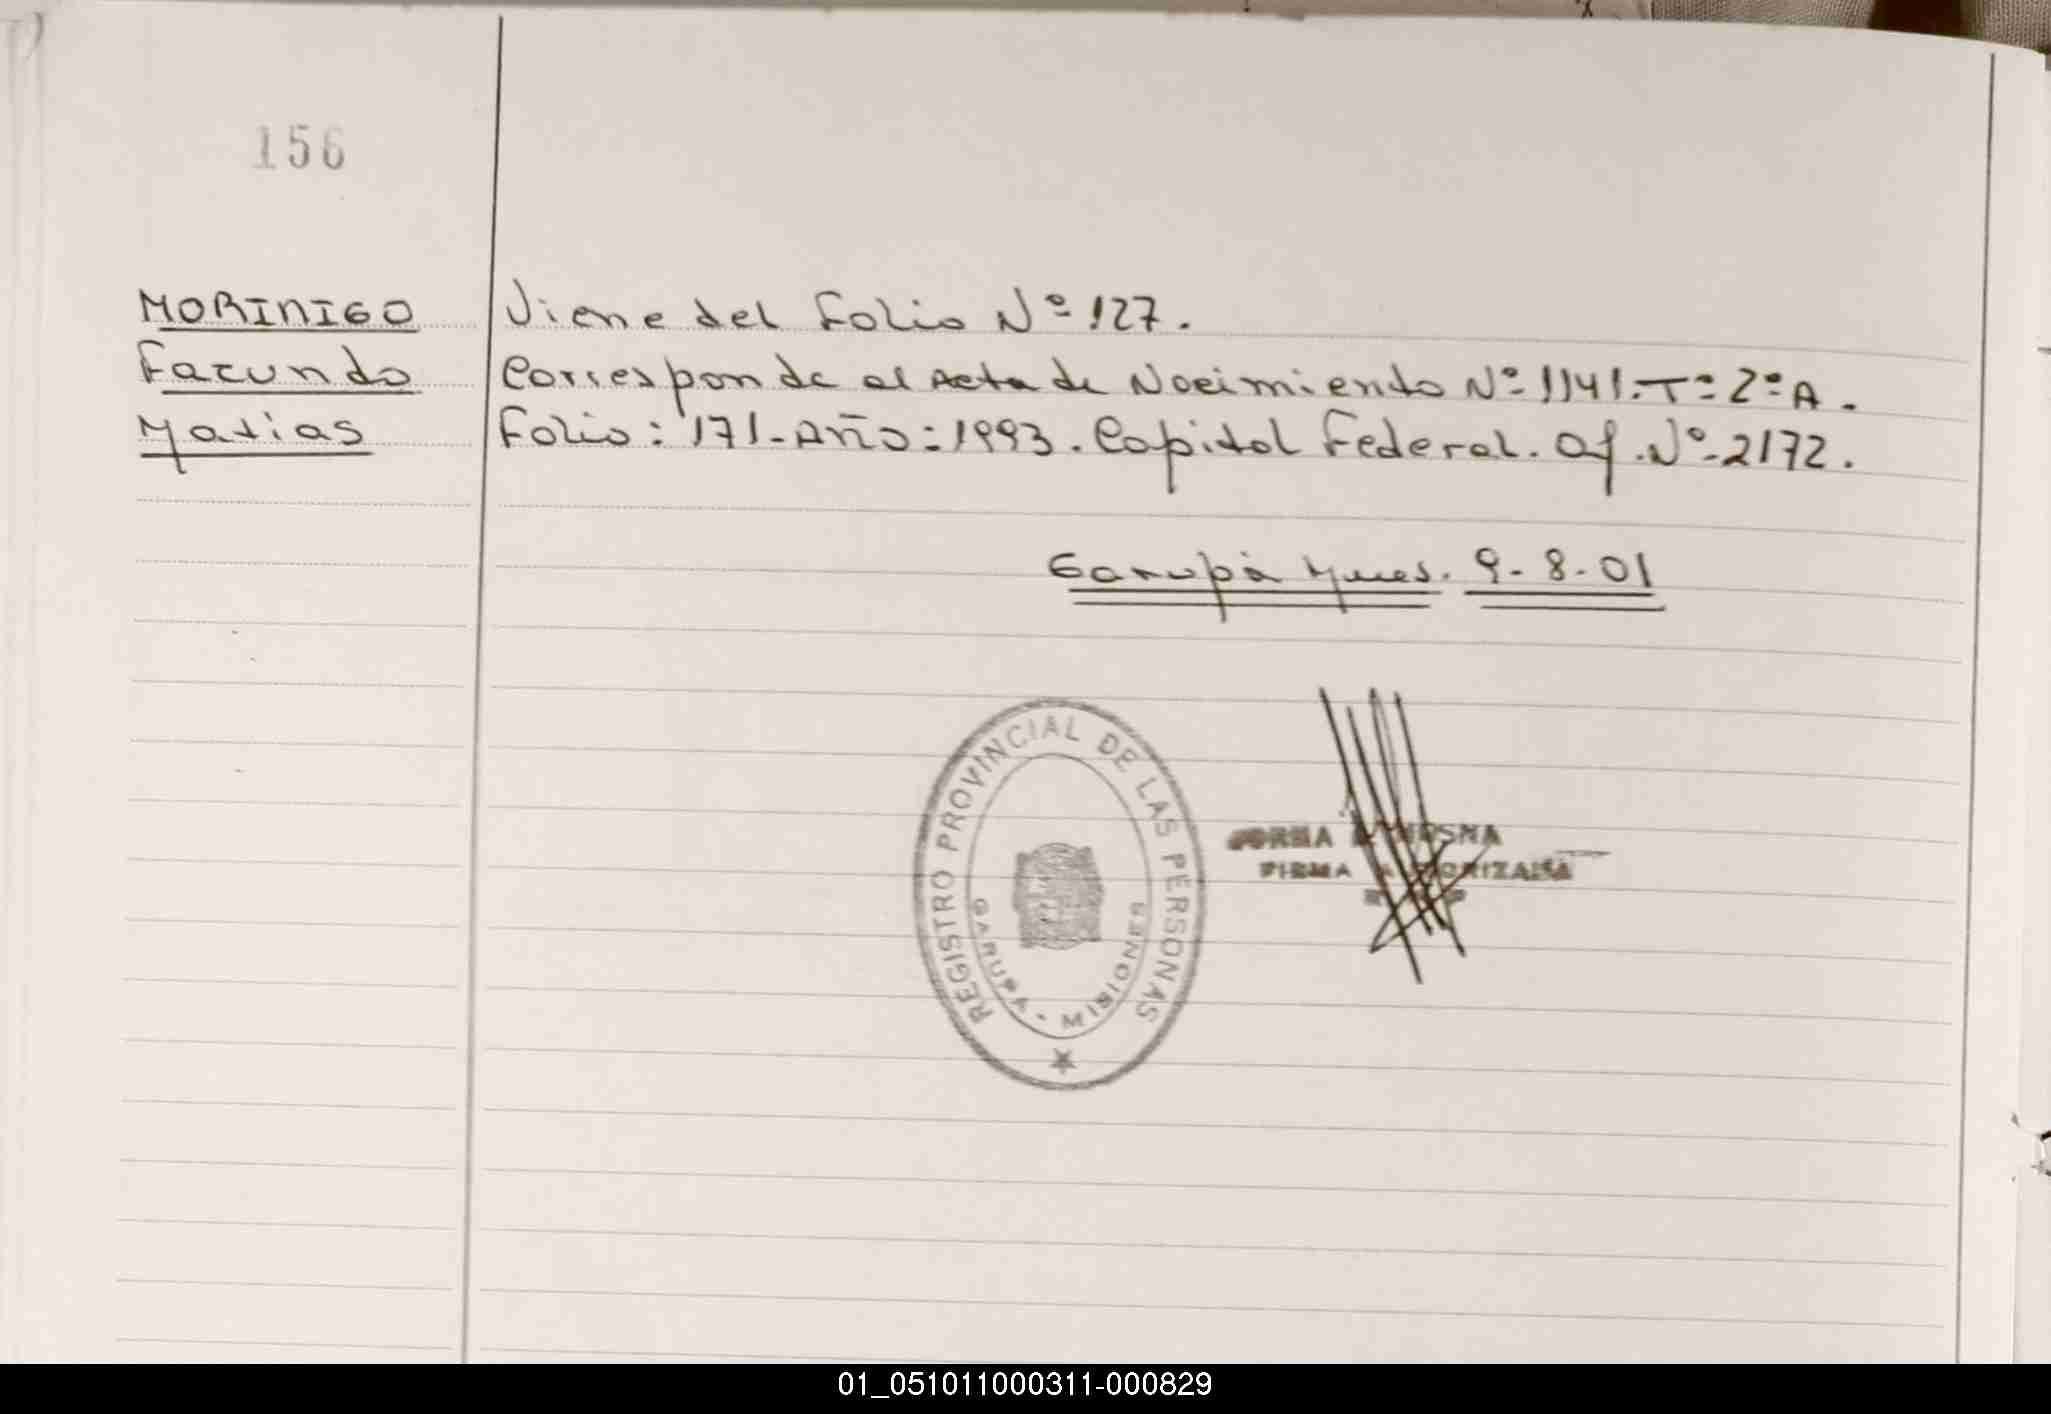 156
MORINIGO
Facundo
Matias
Viene del Folio Nº 127.
Corresponde al Acta de Nacimiento Nº 1141. Tº 2º A.
Folio: 171. Año: 1993. Capital Federal. Of. Nº 2172.
Garupá Mnes. 9-8-01
REGISTRO PROVINCIAL DE LAS PERSONAS
GARUPA - MISIONES
FIRMA
01_051011000311-000829